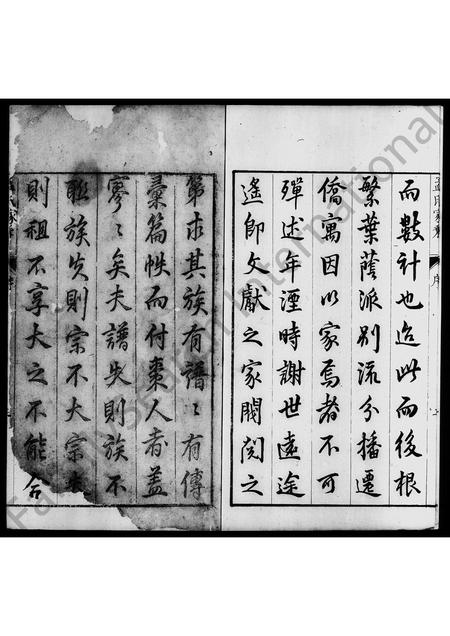 而數計也迨此而後根
繁葉蔭派別流分播遷
僑寓因以家焉者不可
殫述年湮時謝世遠途
遙即文獻之家閥閱之
第求其族有譜譜有傳
彙篇帙而付棗人者蓋
寥寥矣夫譜失則族不
聯族失則宗不大宗
則祖不享大之不能合